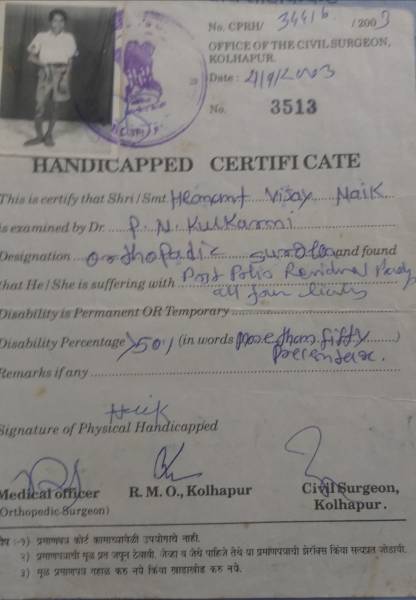 No. CPRH/ 34416 /2003
OFFICE OF THE CIVIL SURGEON,
KOLHAPUR.
Date : 4/9/2003
No. 3513
HANDICAPPED CERTIFICATE
This is certify that Shri / Smt. Hemant Vijay Naik
is examined by Dr. P. N. Kulkarni
Designation Orthopadic surgeon and found
that He / She is suffering with Post Polio Residual
all four limbs
Disability is Permanent OR Temporary
Disability Percentage >50% (in words More than fifty
percentage.)
Remarks if any
Naik
Signature of Physical Handicapped
Medical officer R. M. O., Kolhapur Civil Surgeon,
(Orthopedic Surgeon) Kolhapur.
टिप :- १) प्रमाणपत्र कोर्ट कामाच्यावेळी उपयोगाचे नाही.
२) प्रमाणपत्राची मूळ प्रत जपून ठेवावी. जेव्हा व जेथे पाहिजे तेथे या प्रमाणपत्राची झेरॉक्स किंवा सत्यप्रत जोडावी.
३) मूळ प्रमाणपत्र गहाळ करु नये किंवा खाडाखोड करु नये.